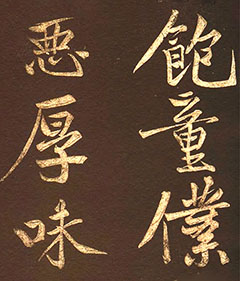 飽童僕
惡厚味